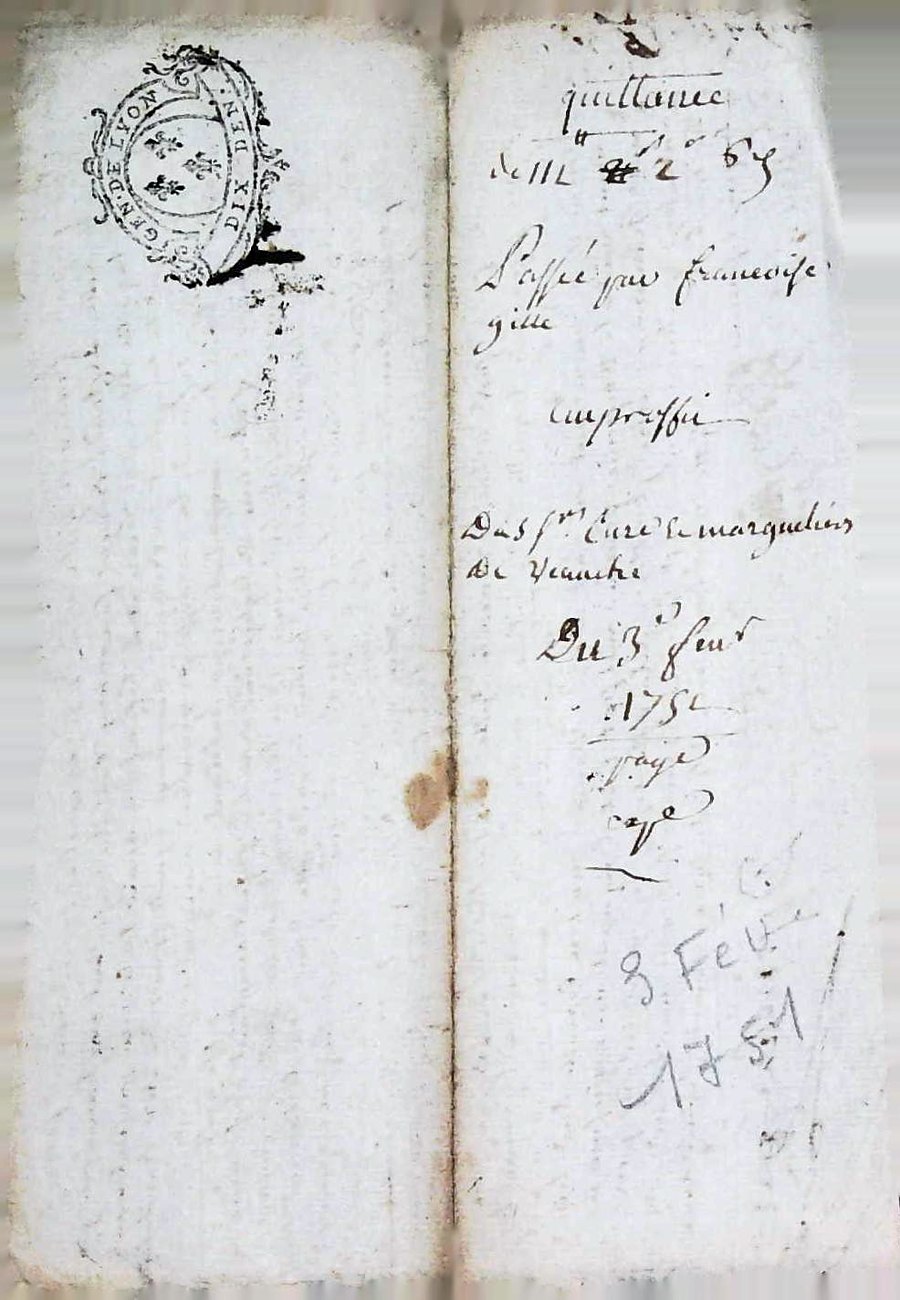 GEN. DE LYON
DIX DEN.
quittance
de 112 ₶ 2ˢ 6ᵈ
Passée par francoise
gille
au proffit
Des sʳˢ Curé & margueliers
De
Du 3ᵉ feuʳ
1751
payé
3 Fév.
1751